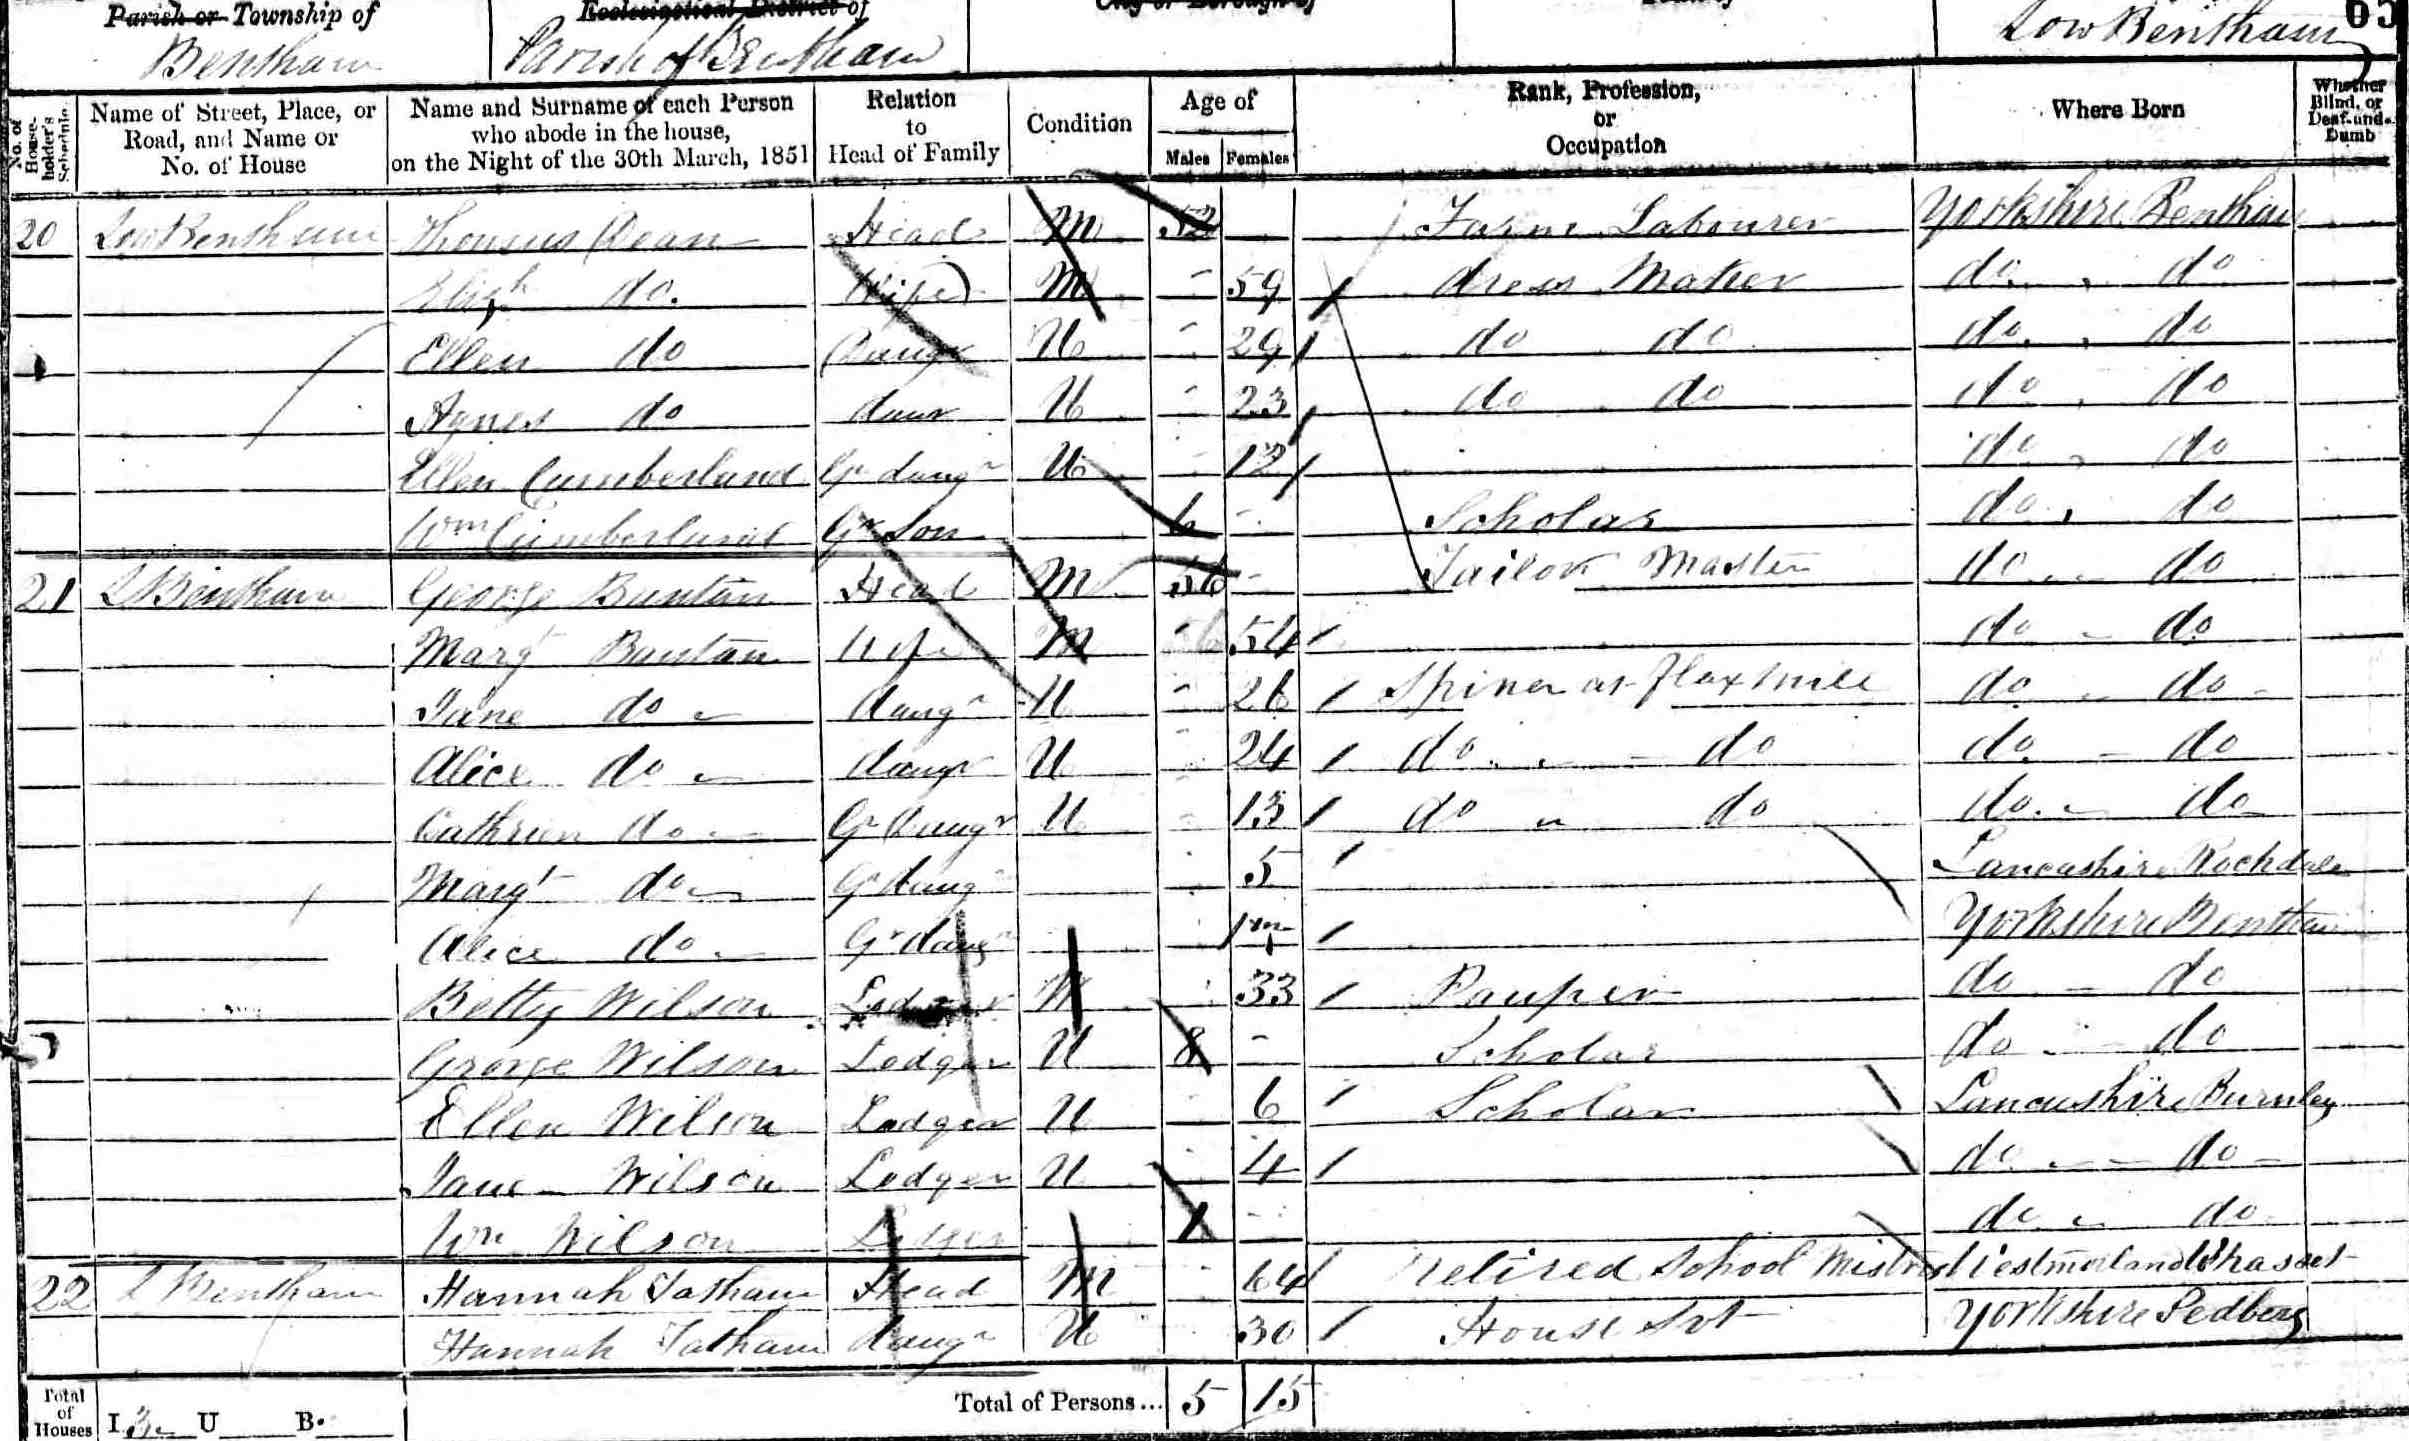 Parish or Township of Ecclesiastical District of City or Borough of 65
Bentham Parish of Bentham Low Bentham
No. of House-holder's Schedule Name of Street, Place, or Road, and Name or No. of House Name and Surname of each Person who abode in the house, on the Night of the 30th March, 1851 Relation to Head of Family Condition Age of Males Females Rank, Profession, or Occupation Where Born Whether Blind, or Deaf-and-Dumb
20 Low Bentham Thomas Dean Head M 52 Farm Labourer Yorkshire Bentham
Elizth do. Wife M - 59 dress Maker do do
Ellen do Daugr U - 29 do do do do
Agnes do daur U - 23 do do do do
Ellen Cumberland Gr daugr U - 12 do do
Wm Cumberland Gr Son 6 - Scholar do do
21 L Bentham George Bantan Head M 56 - Tailor Master do do
Margt Bantan Wife M - 54 do - do
Jane do daugr U - 26 Spiner at flax mill do - do
Alice do daugr U - 24 do - do do - do
Cathrien do Gr Daugr U - 13 do do do - do
Margt do Gr daugr 5 Lancashire Rochdale
Alice do Gr daugr 1m Yorkshire Bentham
Betty Wilson Lodger W 33 Pauper do - do
George Wilson Lodger U 8 - Scholar do - do
Ellen Wilson Lodger U - 6 Scholar Lancashire Burnley
Jane Wilson Lodger U - 4 do - do
Wm Wilson Lodger 1 - do do
22 L Bentham Hannah Tatham Head M - 64 Retired School Mistress Westmorland
Hannah Tatham daugr U 30 House Svt Yorkshire Sedberg
Total of Houses I 3 U B Total of Persons... 5 15